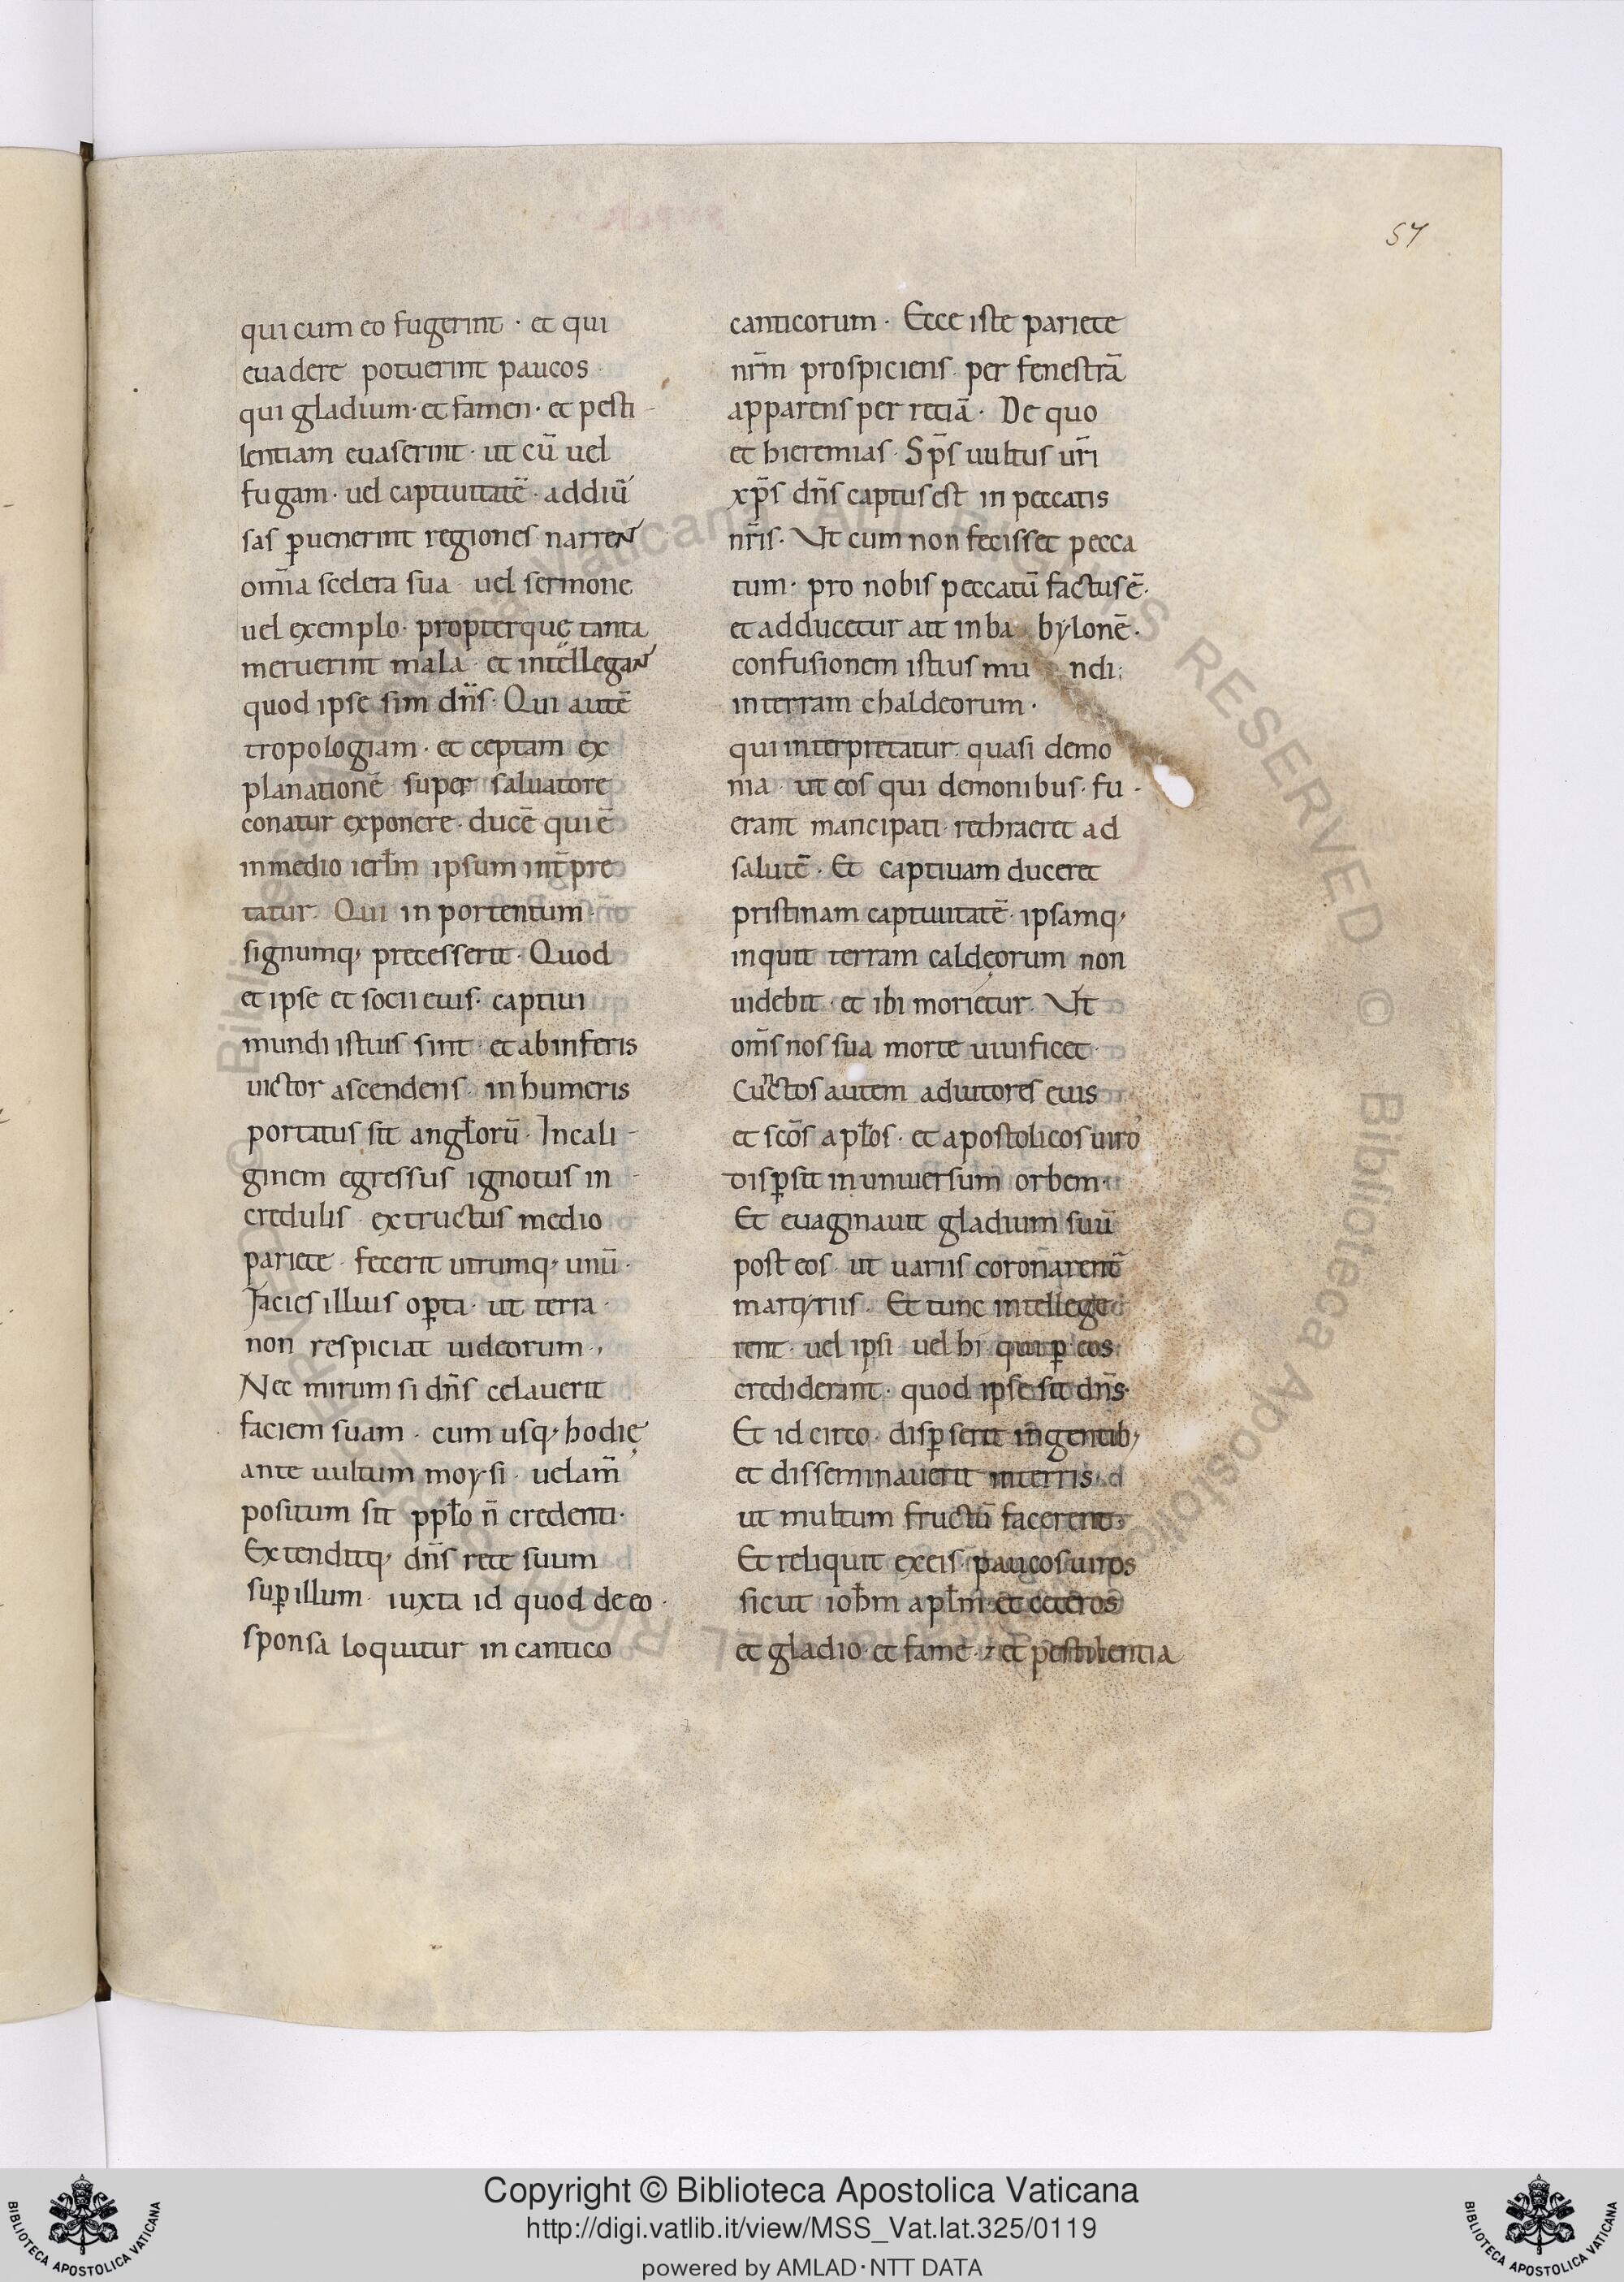 57
qui cum eo fugerint · et qui
euadere potuerint paucos
qui gladium · et famen · et pesti-
lentiam euaserint · ut cū uel
fugam · uel captiuitatē · addiū
sas ꝑuenerint regiones narrent
om̄ia scelera sua · uel sermone
uel exemplo · propterquę tanta
meruerint mala · et intellegant
quod ipse sim dn̄s · Qui autē
tropologiam · et ceptam ex
planationē super saluatore
conatur exponere · ducē qui ē
in medio ierlm̄ ipsum int̄pre
tatur. Qui in portentum
signumq; precesserit · Quod
et ipse et socii eius · captiui
mundi istius sint · et ab inferis
uictor ascendens · in humeris
portatus sit angłorū · In cali-
ginem egressus ignotus in
credulis · extructus medio
pariete · fecerit utrumq; unū ·
Facies illius oꝑta · ut terra ·
non respiciat iudeorum ·,
Nec mirum si dn̄s celauerit
faciem suam · cum usq; hodię
ante uultum moysi · uelam̄
positum sit ppło n̄ credenti ·
Extenditq; dn̄s rete suum
suꝑ illum · iuxta id quod de eo ·
sponsa loquitur in cantico
canticorum · Ecce iste pariete
nr̄m prospiciens · per fenestrā
apparens per retiā · De quo
et hieremias · Sp̄s uultus ur̄i
xp̄s dn̄s captus est in peccatis
nr̄is · Ut cum non fecisset pecca
tum · pro nobis peccatū factus ē ·
et adducetur ait in ba bylonē ·
confusionem istius mu ndi;
in terram chaldeorum ·
qui interpretatur quasi demo
nia · ut eos qui demonibus · fu-
erant mancipati · rethraeret ad
salutē · Et captiuam duceret
pristinam captiuitatē · ipsamq;
inquit terram caldęorum non
uidebit · et ibi morietur · Ut
om̄s nos sua morte uiuificet ·
Cunctos autem adiutores eius
et scōs apłos · et apostolicos uiro
disꝑsit in uniuersum orbem ·
Et euaginauit gladium suū
post eos · ut uariis coronarent̄
martyriis · Et tunc intellege
rent · uel ipsi uel hi qui ꝑ eos
crediderant · quod ipse sit dn̄s ·
Et id circo · disꝑserit in gentib;
et disseminauerit in terris ·
ut multum fructū facerent ·
Et reliquit ex eis paucos uiros
sicut ioh̄m apłm · et ceteros
et gladio · et fame · et pestilentia
Copyright © Biblioteca Apostolica Vaticana
http://digi.vatlib.it/view/MSS_Vat.lat.325/0119
powered by AMLAD·NTT DATA
BIBLIOTECA APOSTOLICA VATICANA
BIBLIOTECA APOSTOLICA VATICANA